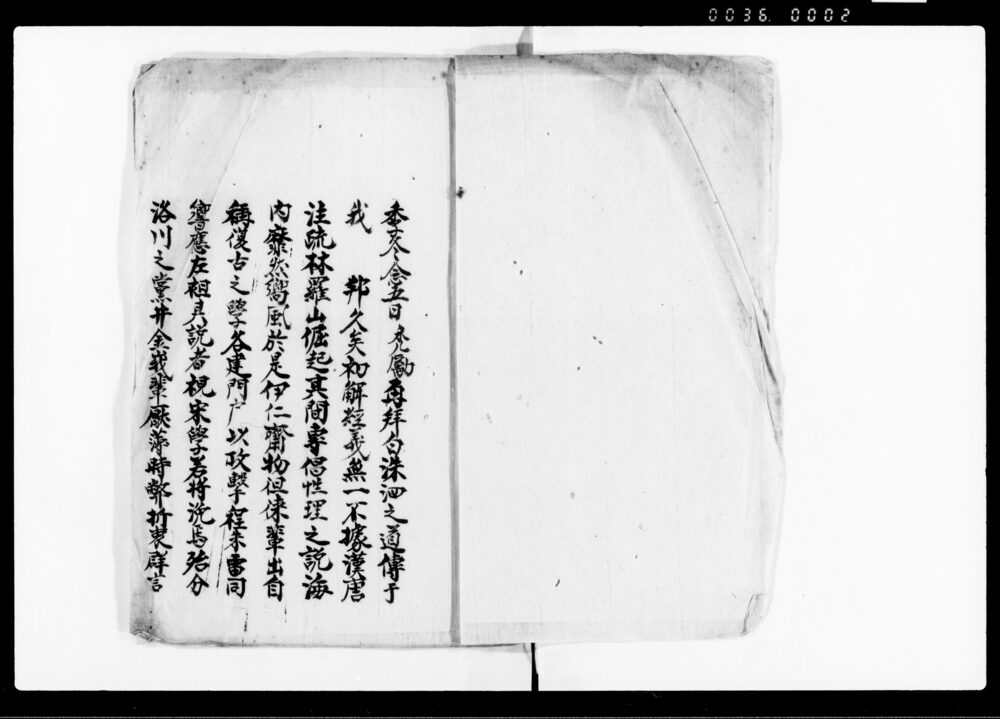 0036 0002
季冬念五日 再拜白洙泗之道傳于
我 邦久矣初解經義無一不據漢唐
注疏林羅山倔起其間專倡性理之說海
內靡然嚮風於是伊仁齋物徂徠輩出自
稱復古之學各建門戶以攻擊程朱雷同
響應左袒其說者視宋學若將浼焉殆分
洛川之黨井金峩輩厭薄時弊折衷群言